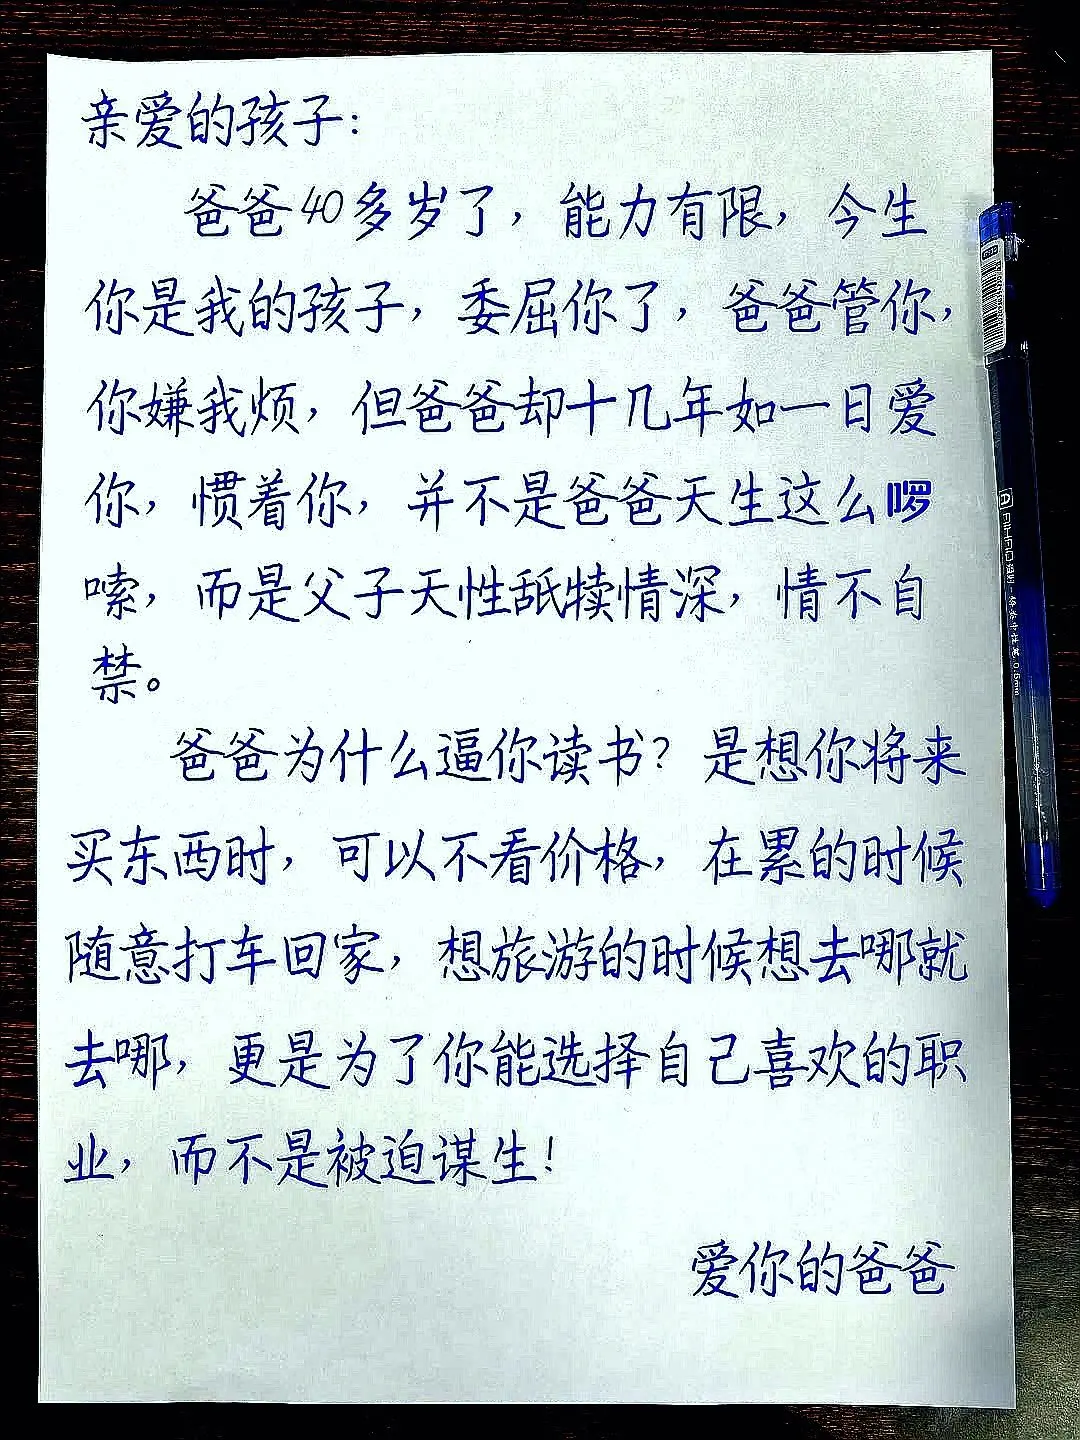 亲爱的孩子：
爸爸40多岁了，能力有限，今生
你是我的孩子，委屈你了，爸爸管你，
你嫌我烦，但爸爸却十几年如一日爱
你，惯着你，并不是爸爸天生这么啰
嗦，而是父子天性舐犊情深，情不自
禁。
爸爸为什么逼你读书？是想你将来
买东西时，可以不看价格，在累的时候
随意打车回家，想旅游的时候想去哪就
去哪，更是为了你能选择自己喜欢的职
业，而不是被迫谋生！
爱你的爸爸
0.5mm